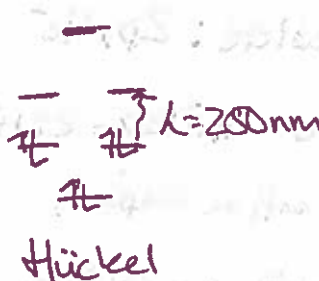 λ=200nm
Hückel